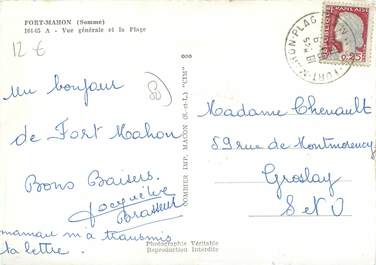 FORT-MAHON (Somme)
10145 A - Vue générale et la Plage
12 €
80
Un bonjour
de Fort Mahon
Bons Baisers.
Jacqueline
Brasseur
maman m'a transmis
ta lettre.
COMBIER IMP. MACON (S.-et-L.) "CIM"
Photographie Véritable
Reproduction Interdite
FRANÇAISE
0,25
FORT-MAHON-PLAGE
Madame Chenault
59 rue de Montmorency
Groslay
S et O